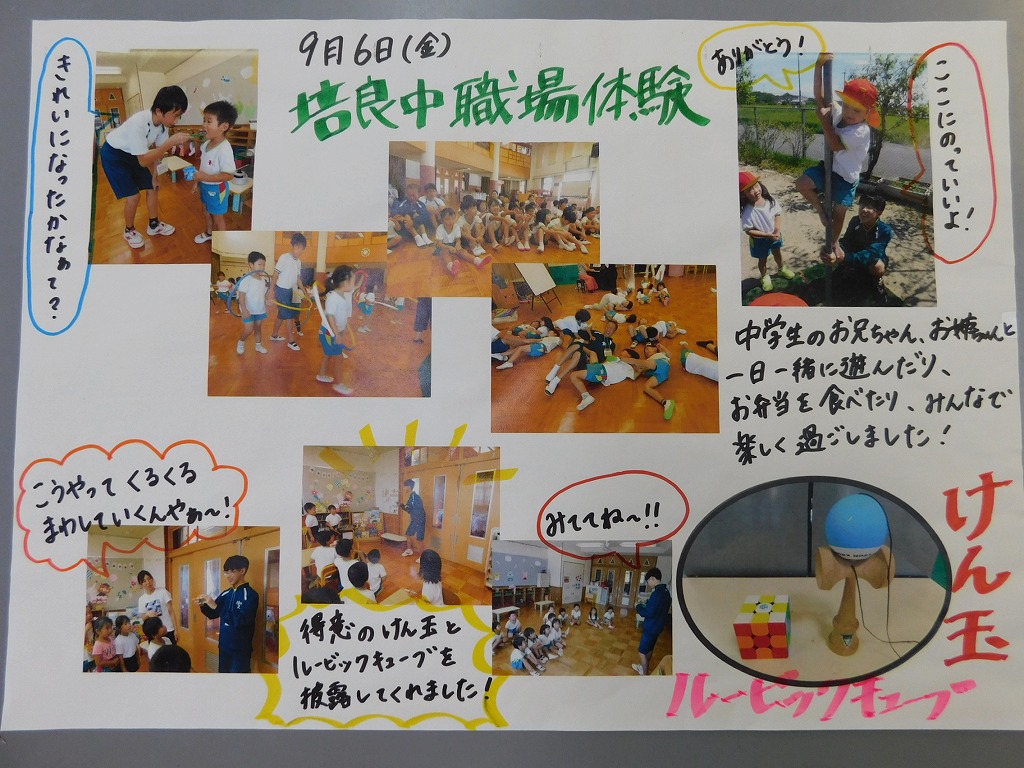 9月6日(金)
培良中職場体験
きれいになったかなぁて?
ありがとう!
ここにのっていいよ!
中学生のお兄ちゃん、お姉ちゃんと
一日一緒に遊んだり、
お弁当を食べたり、みんなで
楽しく過ごしました!
こうやってくるくる
まわしていくんやぁ〜!
得意のけん玉と
ルービックキューブを
披露してくれました!
みててね〜!!
けん玉
ルービックキューブ